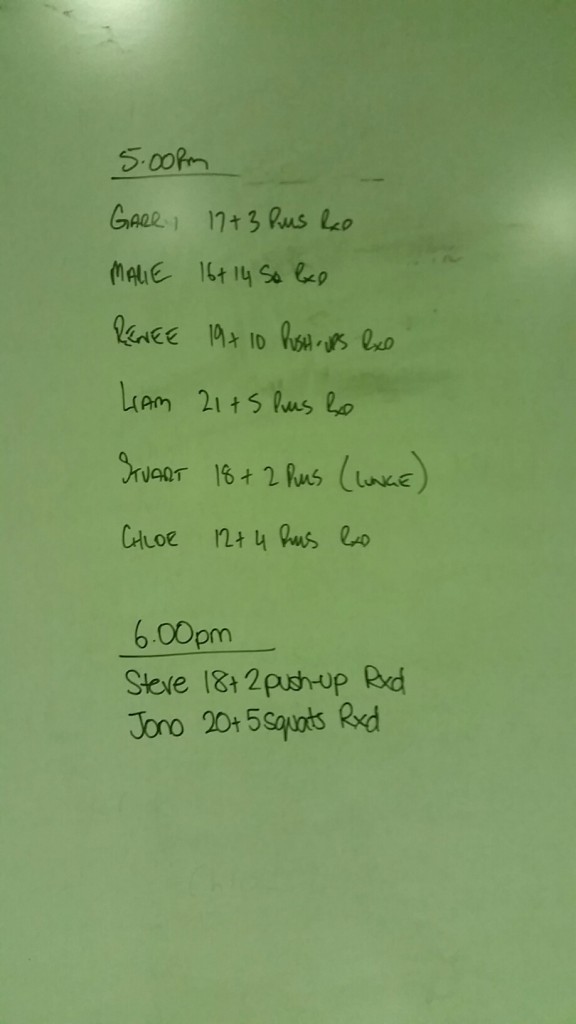 5.00Pm
GARRI 17+3 Pulls RxD
16+14 SQ RxD
RENEE 19+10 PUSH-UPS RxD
LIAM 21+5 Pulls RxD
STUART 18+2 Pulls (LUNGE)
CHLOE 12+4 Pulls RxD
6.00pm
Steve 18+2 push-up Rxd
Jono 20+5 squats Rxd